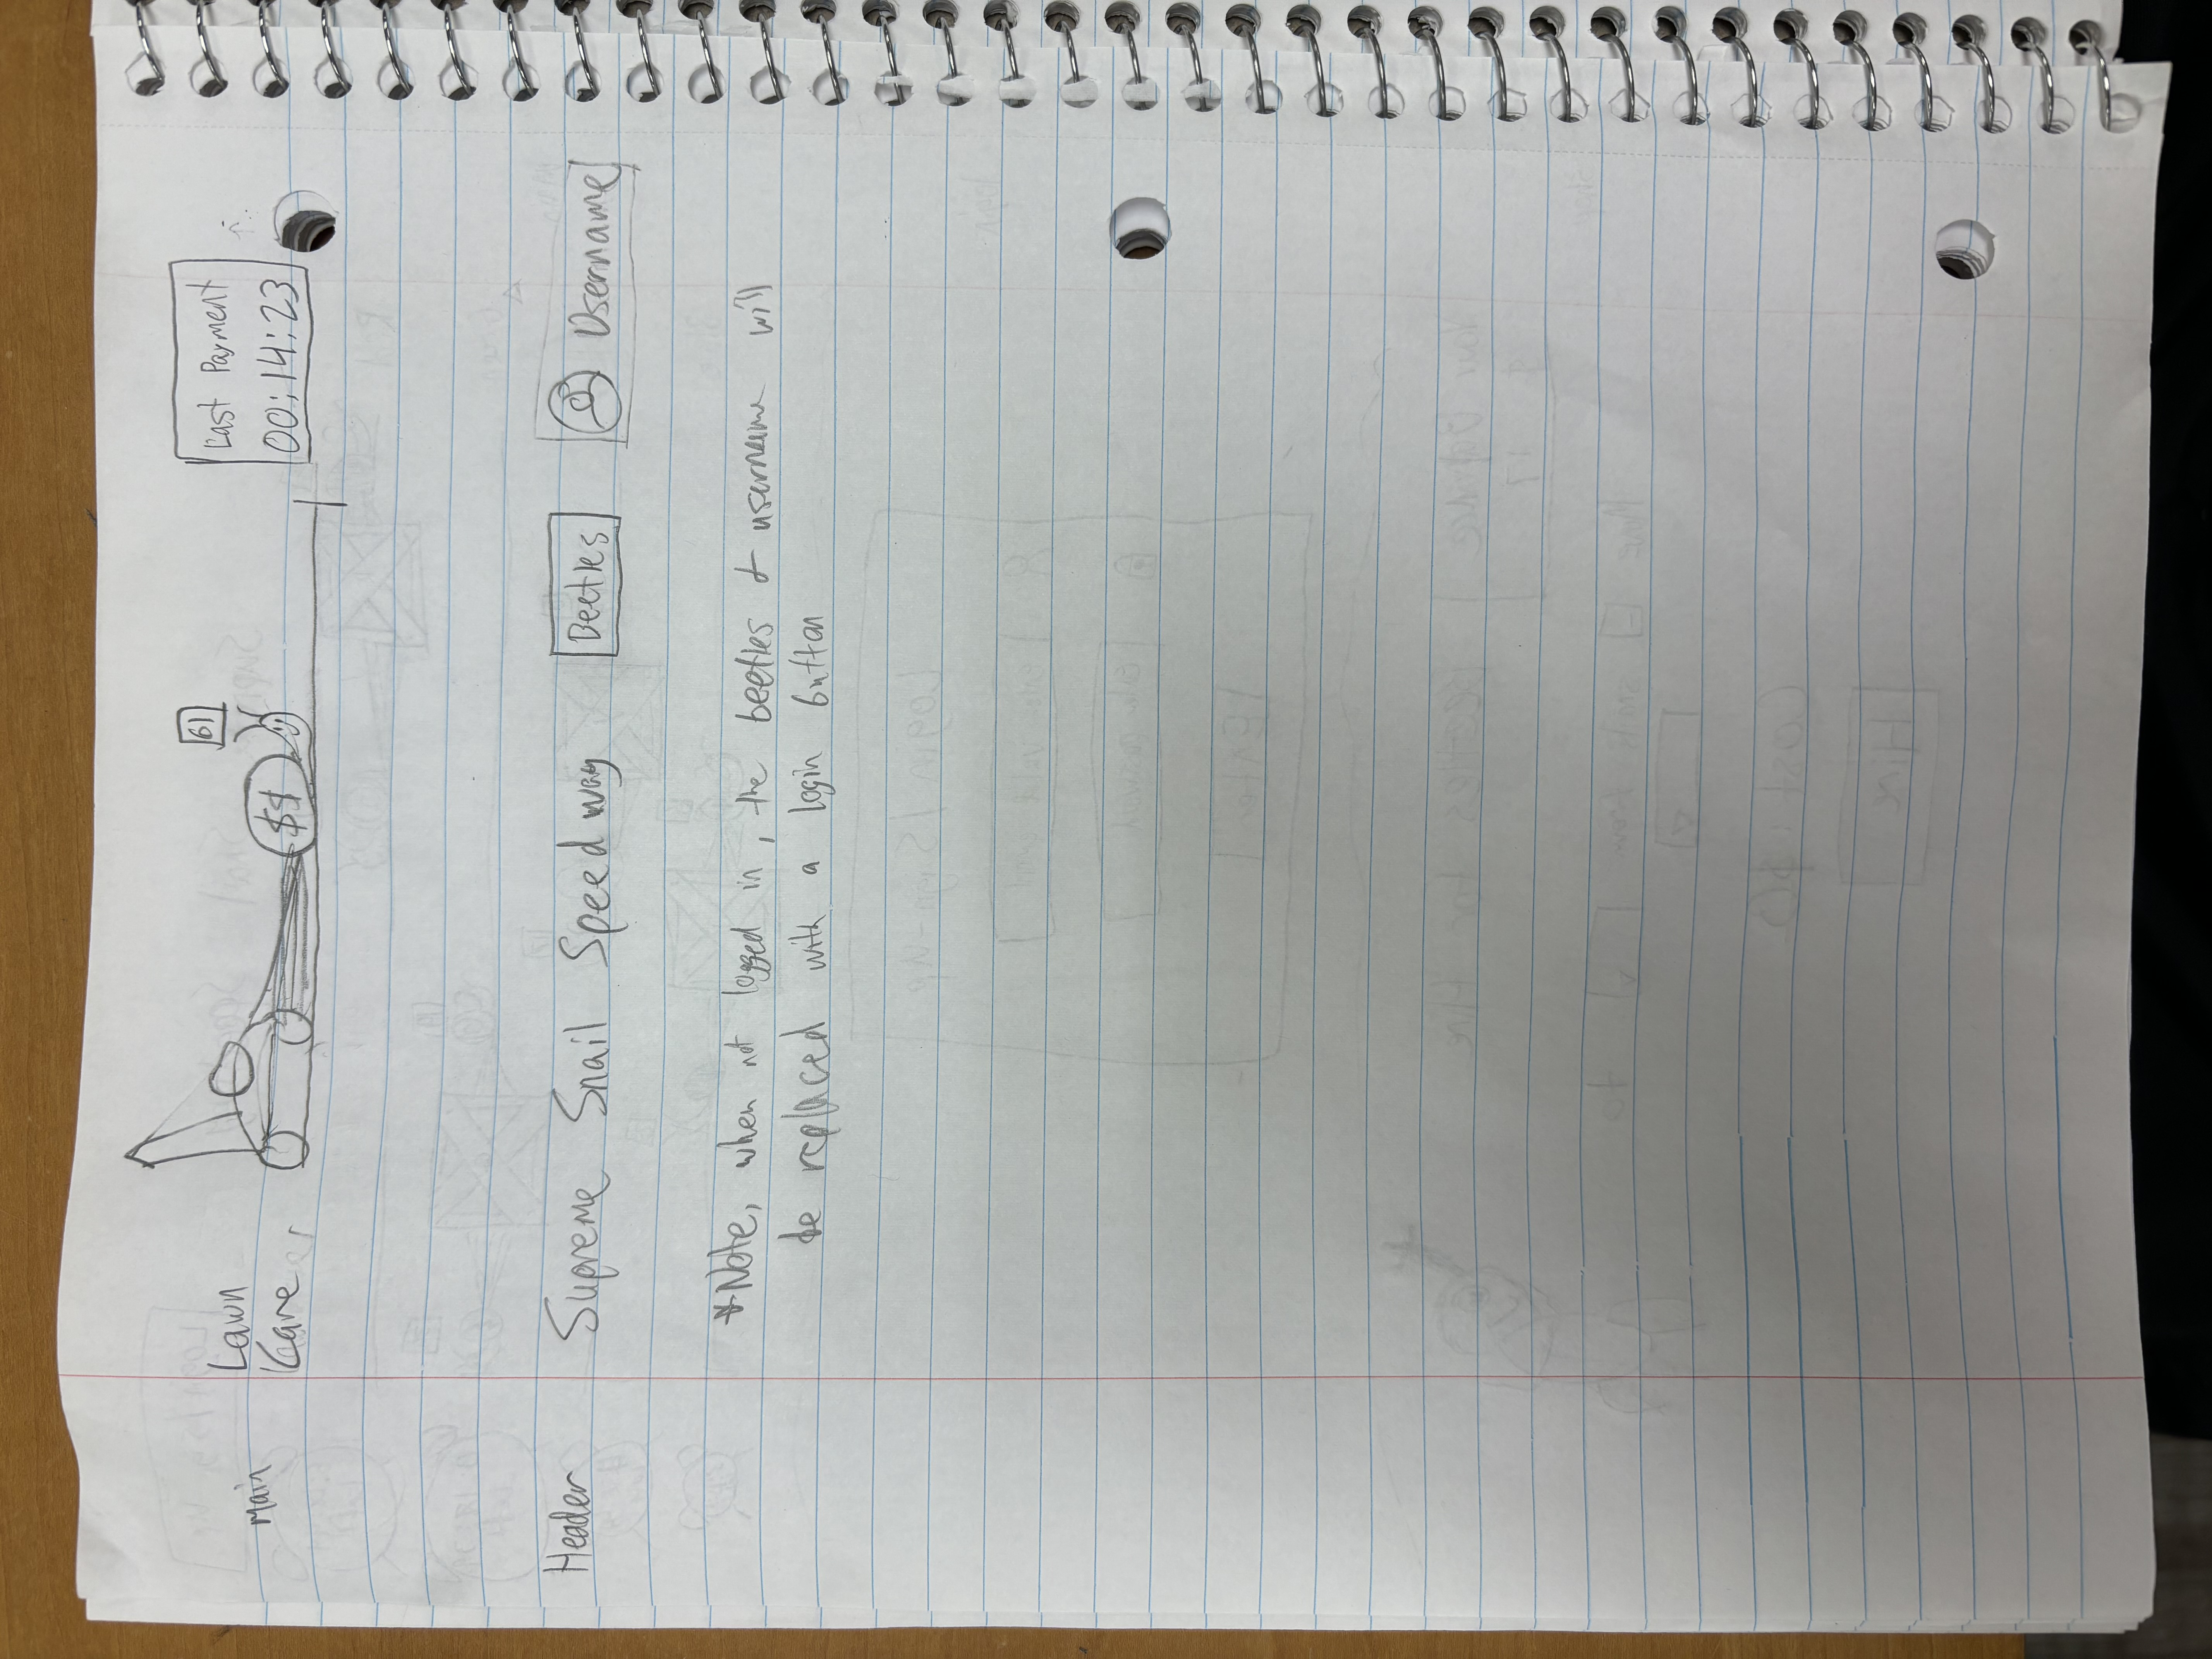 Main
Lawn
Care
$$
61
Last Payment
00:14:23
Header
Supreme Snail Speedway
Beetles
Username
*Note, when not logged in, the beetles & username will
be replaced with a login button